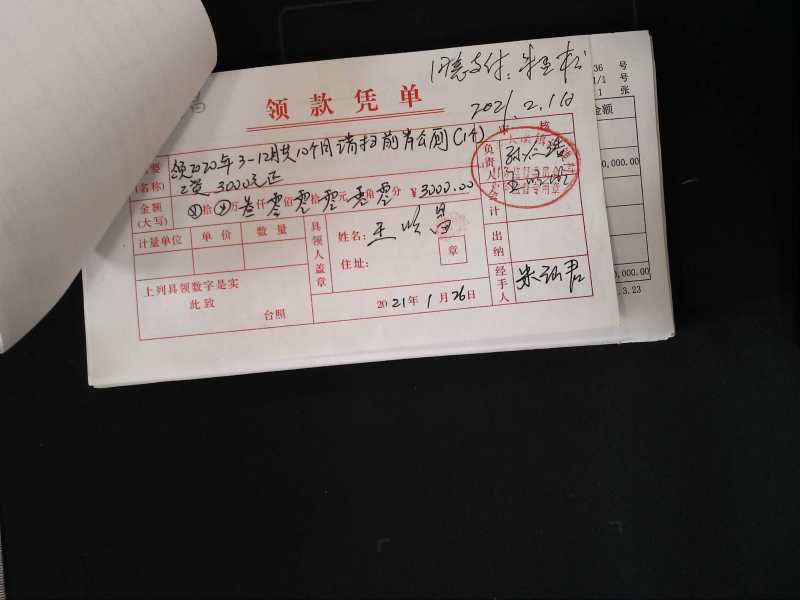 同意支付:
2021.2.1日
领款凭单
36 号
1/1 号
1 张
审核
金额
领2020年3-12月共10个月请扫前岸公厕(1个)
(名称)
工资3000元正
负责人
0,000.00
金额
(大写)
⊗拾⊗万叁仟零佰零拾零元零角零分 ¥3000.00
会计
计量单位 单价 数量
具领人盖章
姓名:
住址:
章
出纳
经手人
上列具领数字是实
此致
台照
2021年1月26日
0,000.00
.3.23